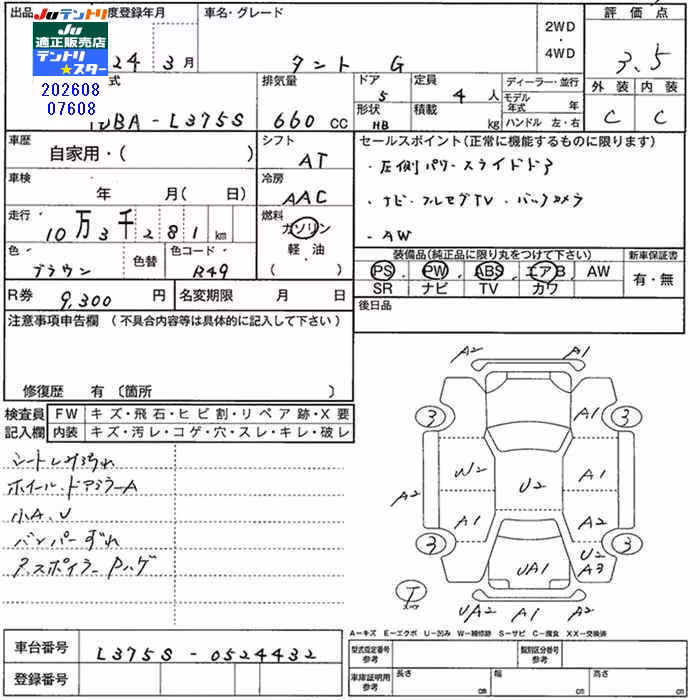 Juテントリ Juテントリ
適正販売店
テントリ
★スター
202608
07608
出品
度登録年月
24 3月
車名・グレード
タント G
2WD
・
4WD
評価点
3.5
外装 内装
C C
式
DBA-L375S
排気量
660 CC
ドア
5
形状
HB
定員
4 人
積載
kg
ディーラー・並行
モデル年式 年
ハンドル 左・右
車歴
自家用・( )
シフト
AT
車検
年 月( 日)
冷房
AAC
走行
10万3千281km
燃料
ガソリン
軽・油
( )
色
ブラウン
色替
色コード
R49
R券 9,300 円
名変期限 月 日
セールスポイント(正常に機能するものに限ります)
・左側パワースライドドア
・ナビ・フルセグTV・バックカメラ
・AW
装備品(純正品に限り丸をつけて下さい)
新車保証書
PS PW ABS エアB AW
有・無
SR ナビ TV カワ
後日品
注意事項申告欄(不具合内容等は具体的に記入して下さい)
修復歴 有〔箇所 〕
検査員
記入欄
FW キズ・飛石・ヒビ割・リペア跡・X要
内装 キズ・汚レ・コゲ・穴・スレ・キレ・破レ
シートしみ汚れ
ホイール・ドアミラーA
小A、U
バンパーずれ
スポイラーPハゲ
A2 A1
3 A1 3
W2 A1
A2 U2
A1 A2
3 U2 3
A3
UA1
T
UA2 A1 A2
A−キズ E−エクボ U−凹み W−補修跡 S−サビ C−腐食 XX−交換済
車台番号
L375S-0524432
登録番号
型式指定番号
参考
類別区分番号
参考
車庫証明用
参考
長さ cm
幅 cm
高さ cm